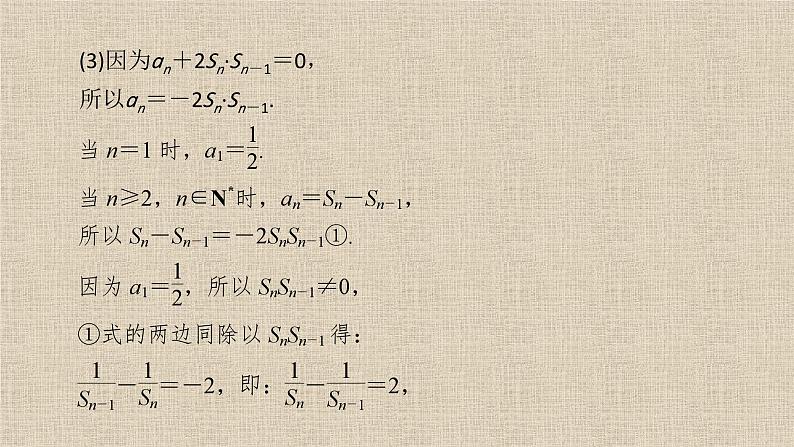 (3)因为aₙ＋2Sₙ·Sₙ₋₁＝0，
所以aₙ＝－2Sₙ·Sₙ₋₁.
当 n＝1 时，a₁＝1/2.
当 n≥2，n∈N*时，aₙ＝Sₙ－Sₙ₋₁，
所以 Sₙ－Sₙ₋₁＝－2SₙSₙ₋₁①.
因为 a₁＝1/2，所以 SₙSₙ₋₁≠0，
①式的两边同除以 SₙSₙ₋₁ 得：
1/Sₙ₋₁－1/Sₙ＝－2，即：1/Sₙ－1/Sₙ₋₁＝2，